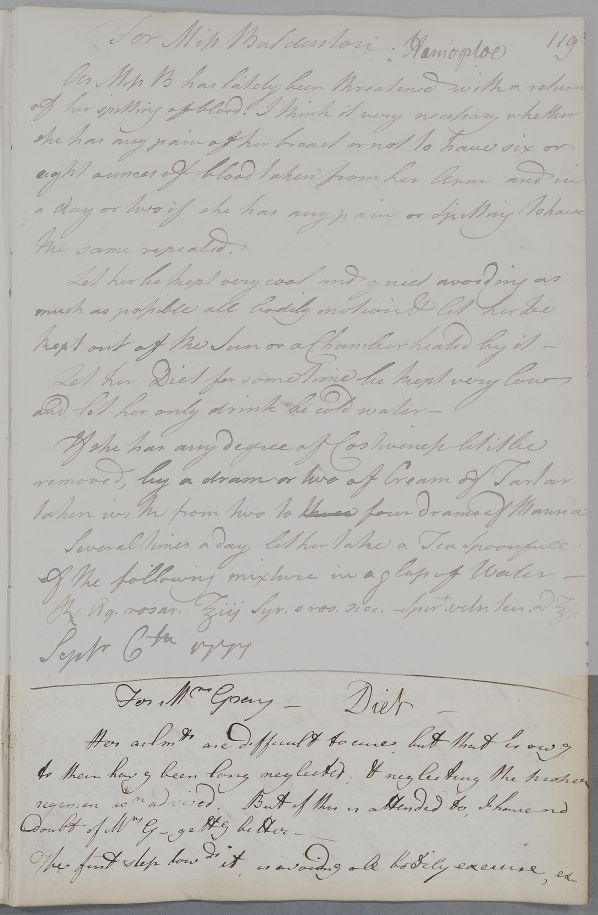 For Miss Balderston. Hemoptoe 119
As Miss B has lately been threatened with a return
of her spitting of blood. I think it very necessary whether
she has any pain of her breast or not to have six or
eight ounces of blood taken from her Arm and in
a day or two if she has any pain or Spitting to have
the same repeated.
Let her be kept very cool and quiet avoiding as
much as possible all bodily motion & let her be
kept out of the Sun or a Chamber heated by it –
Let her Diet for some time be kept very low
and let her only drink be cold water –
If she has any degree of Costiveness let it be
removed, by a dram or two of Cream of Tartar
taken with from two to three four drams of Manna
Several times a day let her take a Tea Spoonfull
of the following mixture in a glass of Water –
℞ Aq. rosar. ʒiij Syr. e ros. sicc. Spir. vitr. ten.
Septr 6th 1777
For Mrs Gray – Diet –
Her ailmts are difficult to cure, but that is owg
to their havg been long neglected, & neglecting the proper
regimen wn advised. But if this is attended to, I have no
doubt of Mrs G– gettg better –
The first step towds it, is avoidg all bodily exercise, ex-